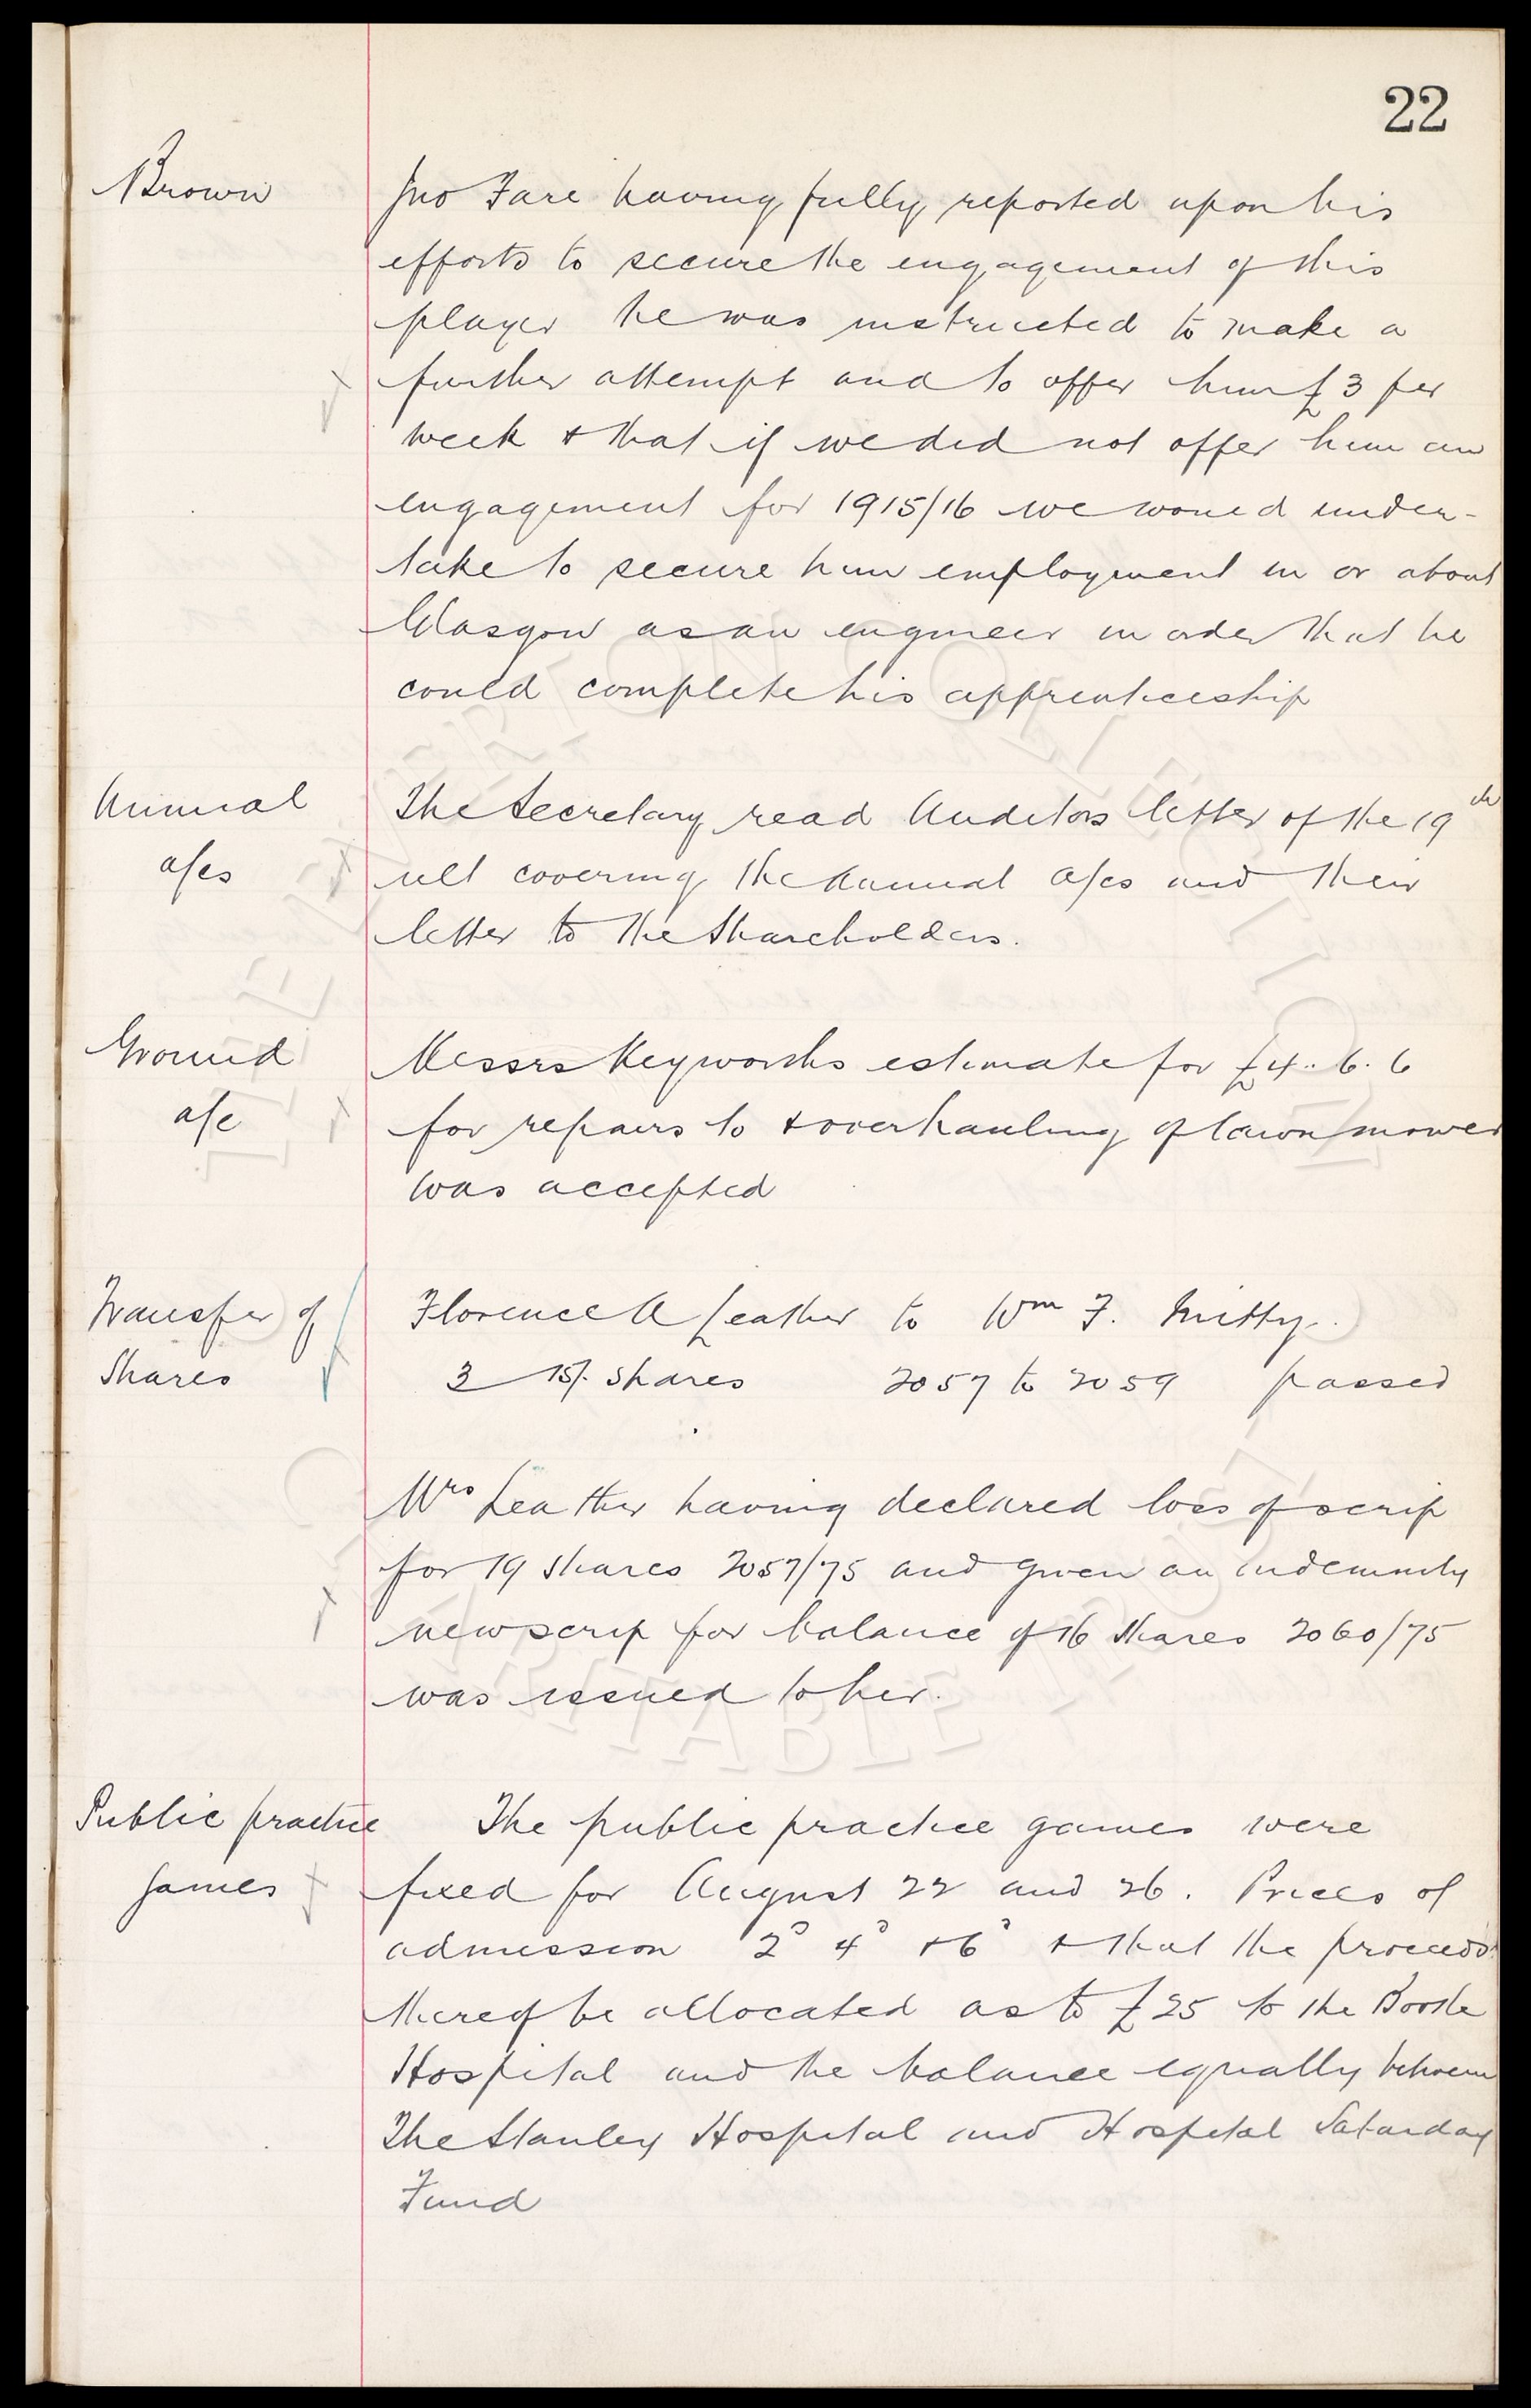 22
Brown
Jno Fare having fully reported upon his
efforts to secure the engagement of this
player he was instructed to make a
further attempt and to offer him £3 per
week & that if we did not offer him an
engagement for 1915/16 we would under-
take to secure him employment in or about
Glasgow as an engineer in order that he
could complete his apprenticeship
Annual
a/cs
The Secretary read Auditors letter of the 19th
ult covering the Annual a/cs and their
letter to the Shareholders.
Ground
a/c
Messrs Keyworths estimate for £4.. 6. 6
for repairs to & overhauling of lawn mower
was accepted
Transfer of
Shares
Florence A Leather to Wm F.
3 15/. shares 2057 to 2059 passed
Mrs Leather having declared loss of scrip
for 19 shares 2057/75 and given an indemnity
new scrip for balance of 16 shares 2060/75
was issued to her.
Public practice
games
The public practice games were
fixed for August 22 and 26. Prices of
admission 2d 4d & 6d & that the proceeds
thereof be allocated as to £25 to the Bootle
Hospital and the balance equally between
The Stanley Hospital and Hospital Saturday
Fund